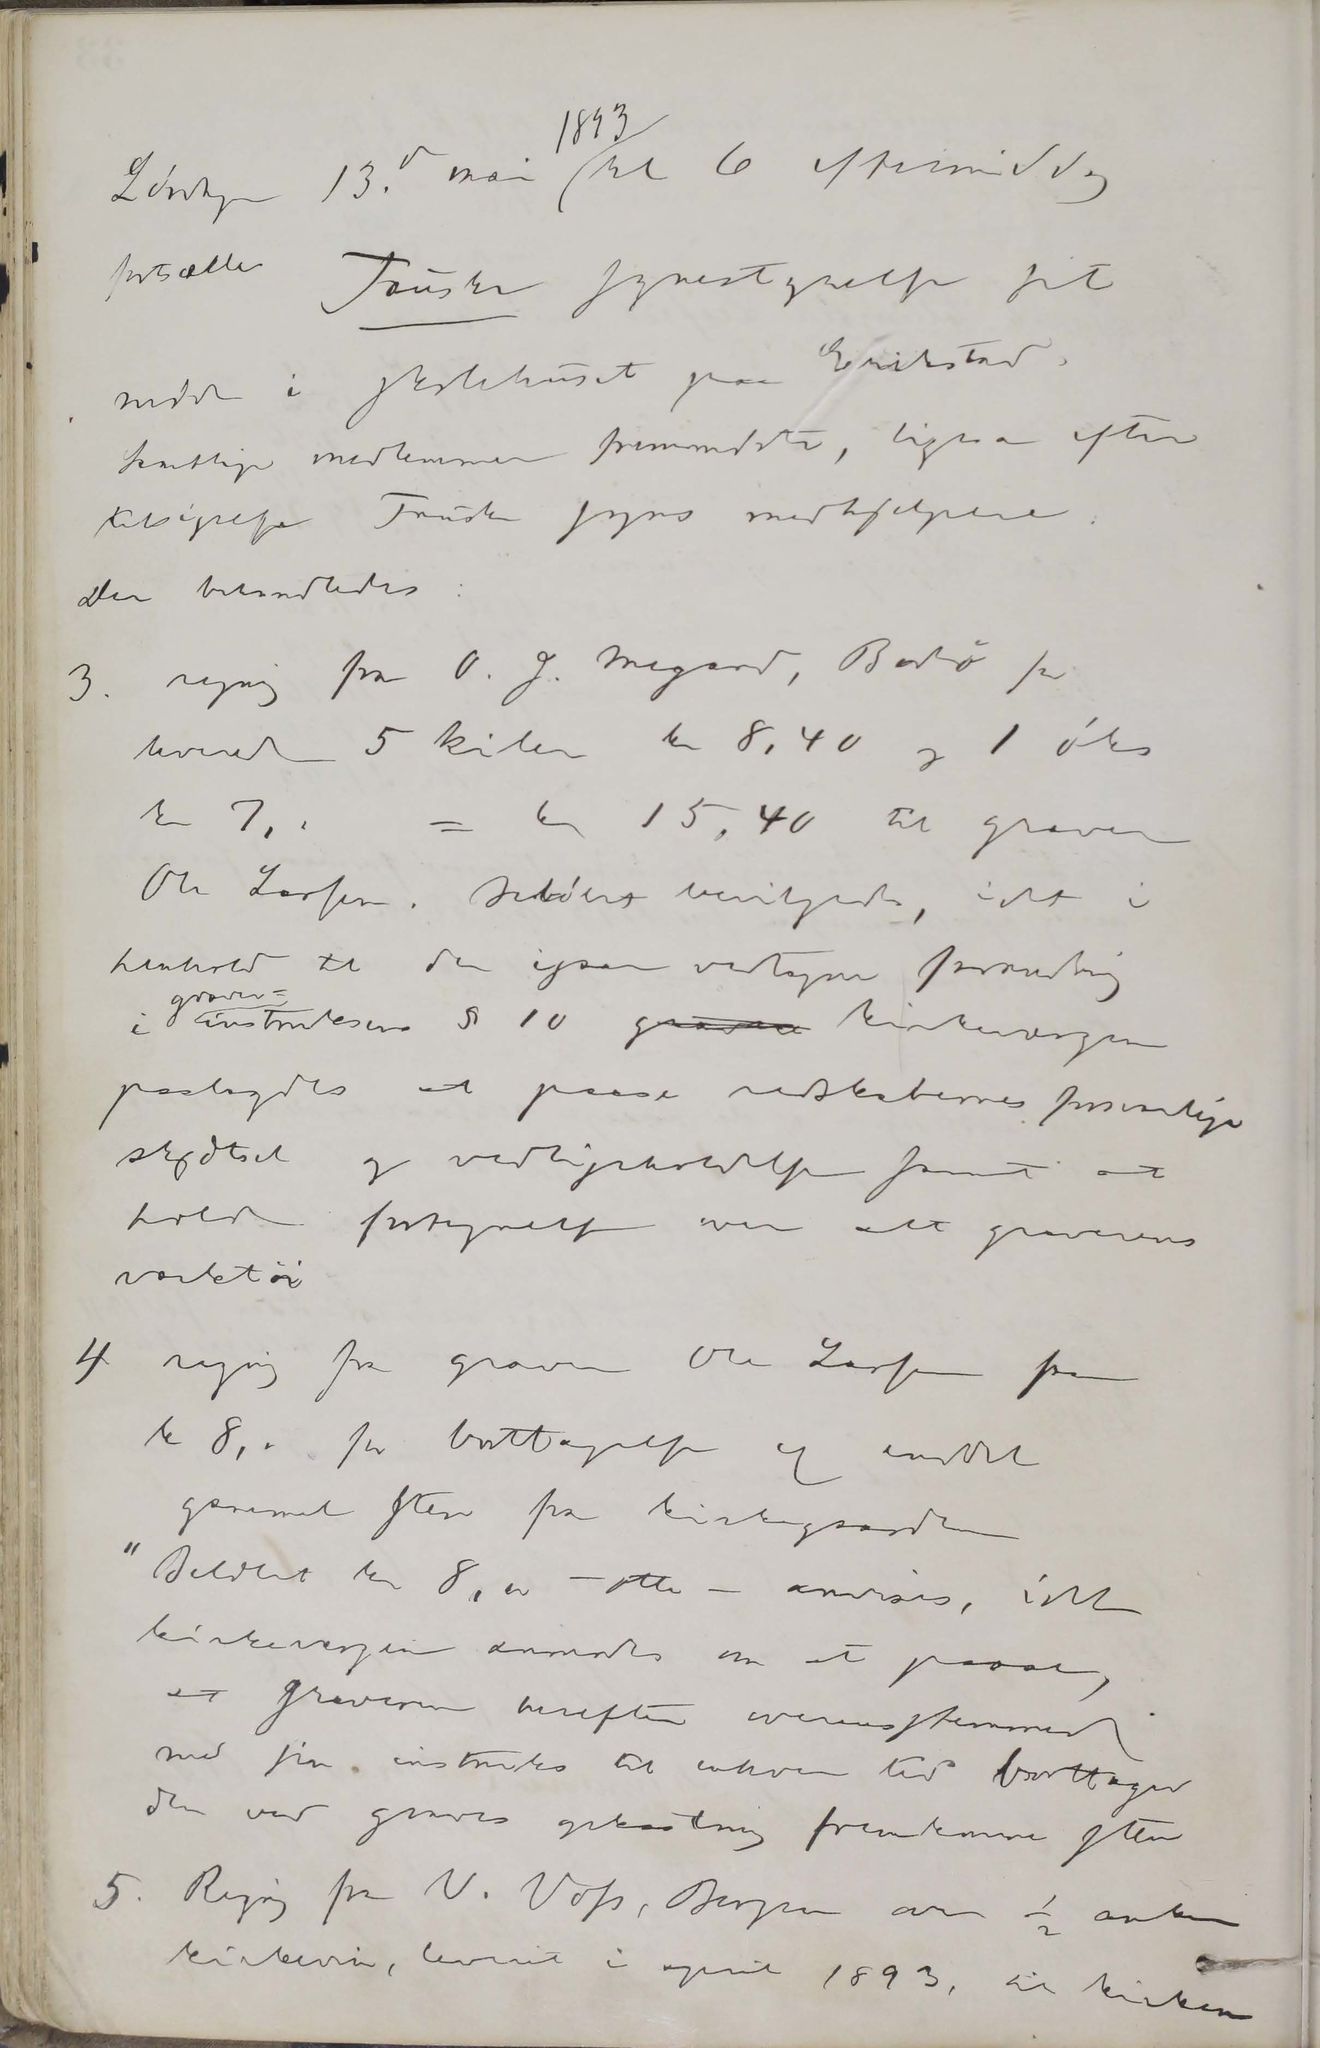 1893
Lördagen 13.d mai kl 6 eftermiddag
fortsætter Fauske synestyrelse sit
möde i skolehuset paa Erikstad.
samtlige medlemmer fremmödte, ligesaa efter
tilsigelse Fauske sogns medhjelpere.
Der behandledes:
3. regning fra O. J. Megaard, Bodö for
leverede 5 kiler kr 8,40 og 1 öks
kr 7,. = kr 15,40 til graver
Ole Larsen. Belöbet bevilgedes, idet i
henhold til den igaar vedtagne forandring
graver=
i instruksens § 10 kirkeværgen
paalagdes at paase redskabernes forsvarlige
skjötsel og vedligeholdelse samt at
holde fortegnelse over alt graverens
værktöi
4 regning fra graver Ole Larsen paa
kr 8,. for borttagelse af endel
gammel sten fra kirkegaarden
" Belöbet kr 8,00 - otte - anvises, idet
kirkeværgen anmodes om at paase,
at graveren herefter overensstemmende
med sin instruks til enhver tid borttager
den ved graves opkastning fremkomne sten
5. Regning fra V. Voss, Bergen over 1/2 anker
kirkevin, leveret i april 1893, til kirken